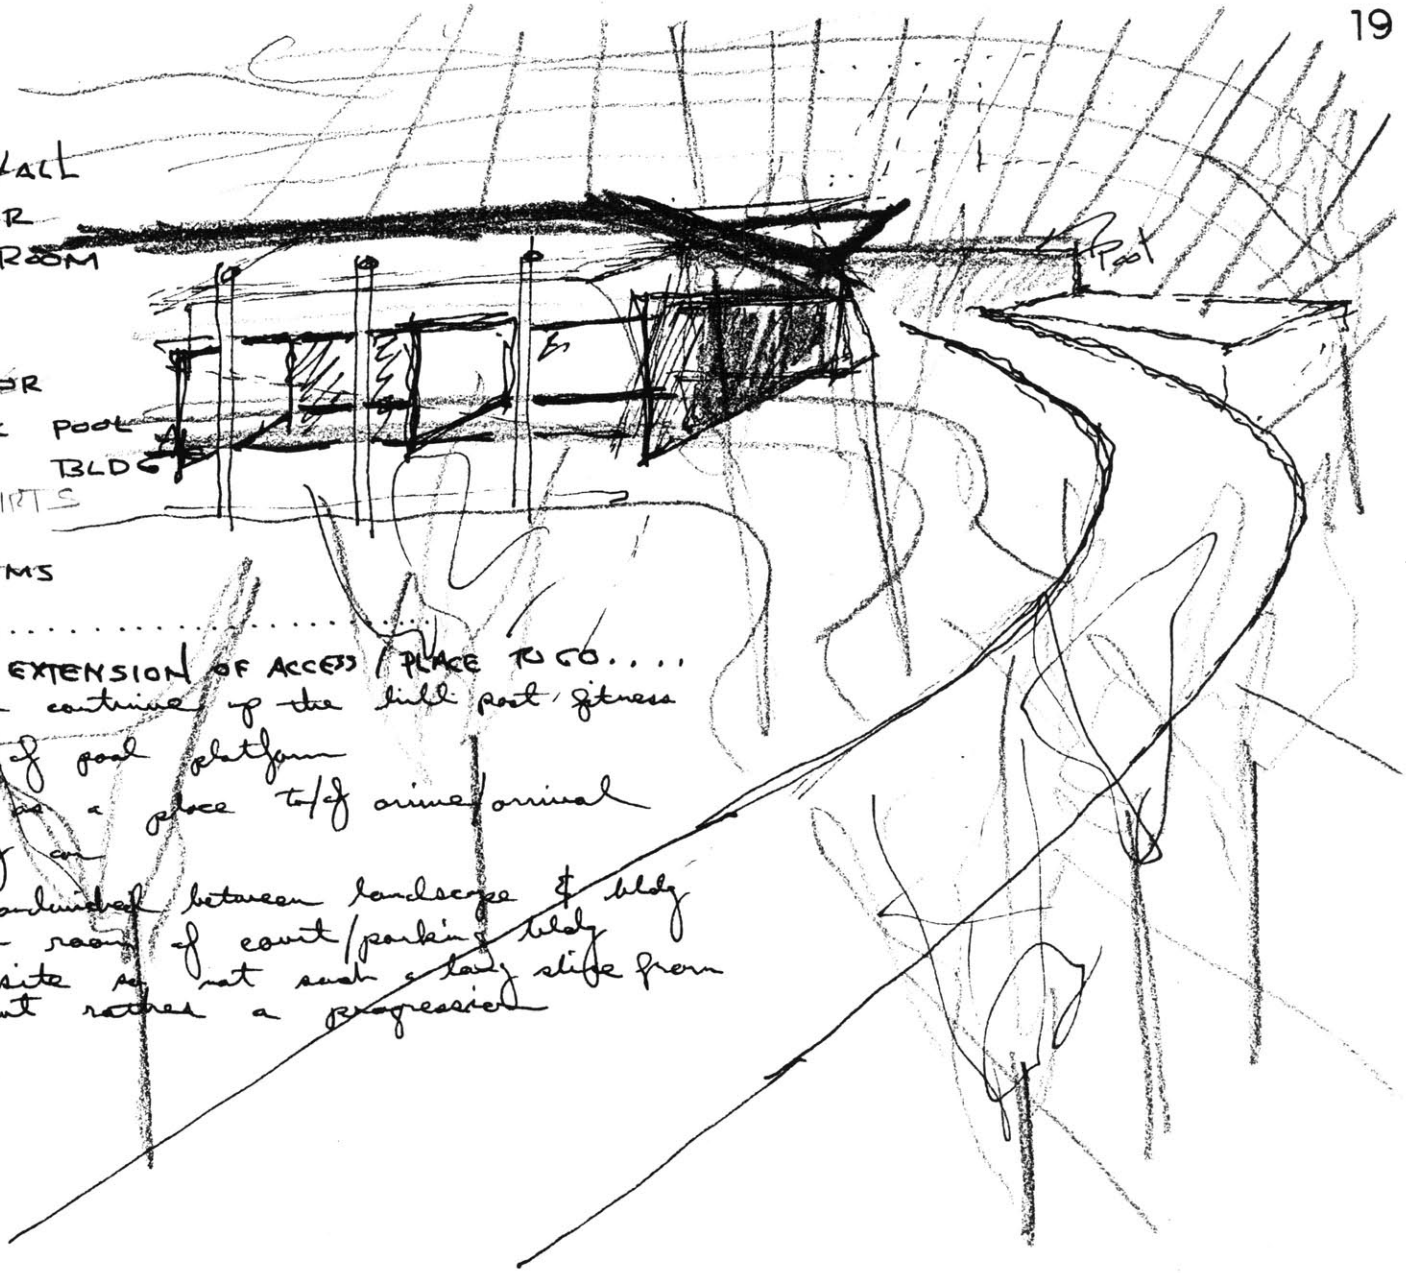 19
ALL
R
ROOM
Pool
OR
POOL
BLDG
RTS
MS
EXTENSION OF ACCESS / PLACE TO GO....
continue up the hill past fitness
of pool platform
as a place to/of arrive/arrival
between landscape & bldg
room of court/parking bldg
site so not such a long slide from
rather a progression